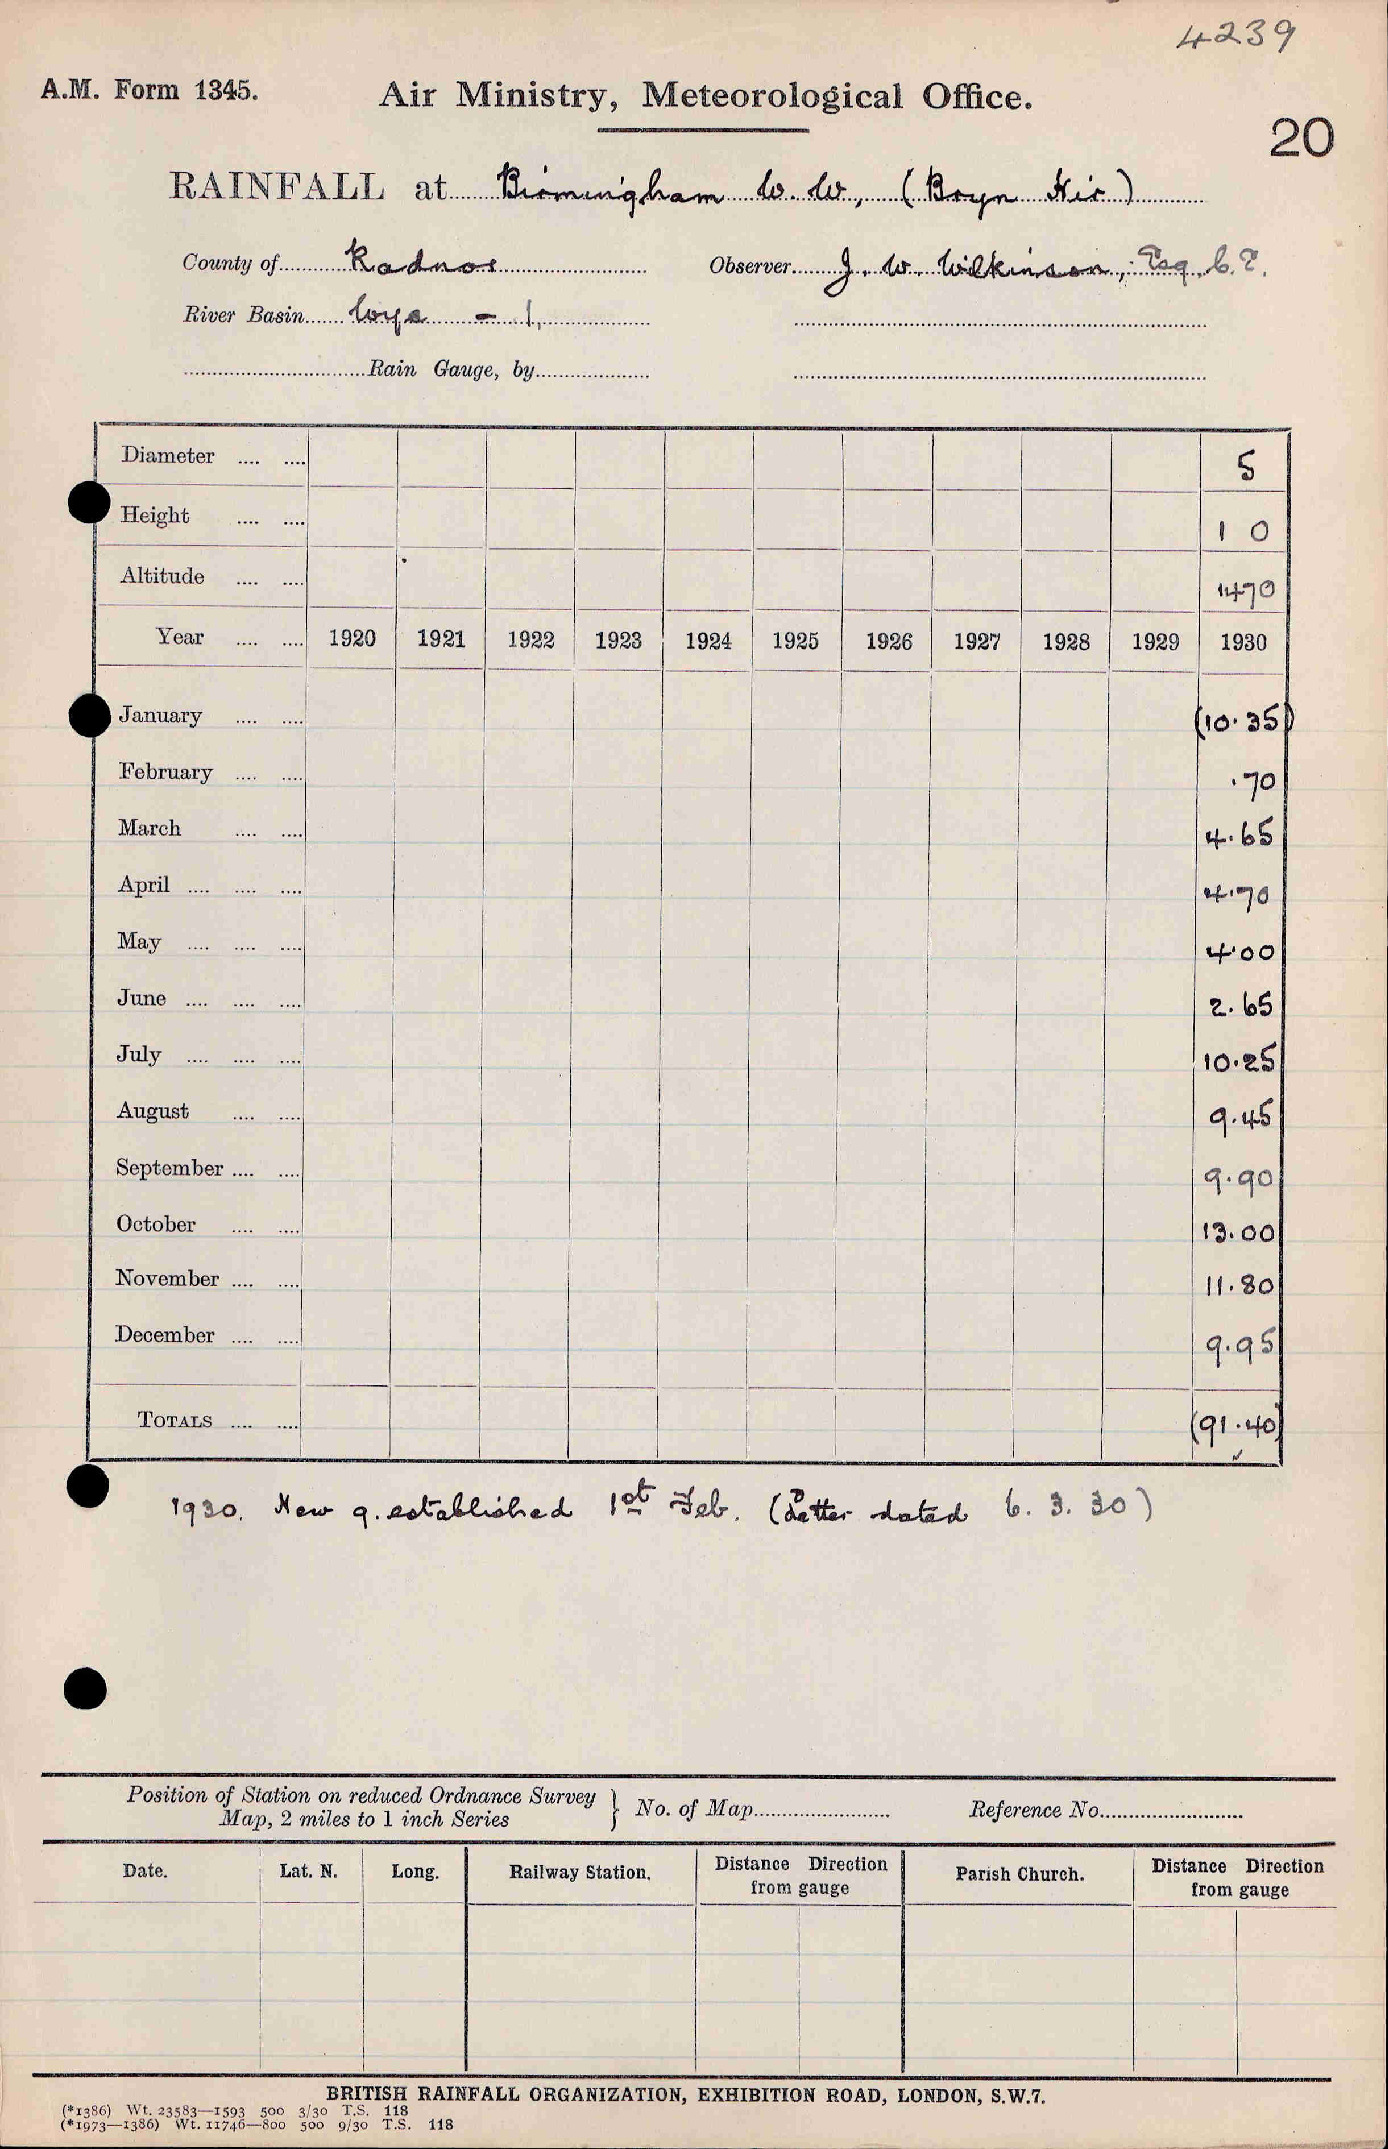 4239
A.M. Form 1345. Air Ministry, Meteorological Office.
20
RAINFALL at Birmingham W. W, (Bryn Hir)
County of Radnor Observer J. W. Wilkinson, Esq. C.E.
River Basin Wye - 1,
Rain Gauge, by
Diameter .... .... 5
Height .... .... 1 0
Altitude .... .... 1470
Year .... .... 1920 1921 1922 1923 1924 1925 1926 1927 1928 1929 1930
January .... .... (10.35)
February .... .... .70
March .... .... 4.65
April .... .... .... 4.70
May .... .... .... 4.00
June .... .... .... 2.65
July .... .... .... 10.25
August .... .... 9.45
September .... .... 9.90
October .... .... 13.00
November .... .... 11.80
December .... .... 9.95
TOTALS .... .... (91.40)
1930. New g. established 1st Feb. (Letter dated 6. 3. 30)
Position of Station on reduced Ordnance Survey
Map, 2 miles to 1 inch Series } No. of Map Reference No.
Date. Lat. N. Long. Railway Station. Distance Direction from gauge Parish Church. Distance Direction from gauge
BRITISH RAINFALL ORGANIZATION, EXHIBITION ROAD, LONDON, S.W.7.
(*1386) Wt. 23583—1593 500 3/30 T.S. 118
(*1973—1386) Wt. 11746—800 500 9/30 T.S. 118